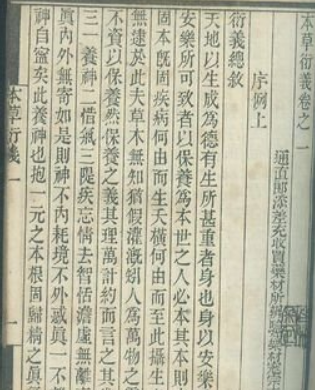 本草衍義卷之一
通直郎添差充收買藥材所辨驗藥材寇宗
序例上
衍義總敘
天地以生成為德有生所甚重者身也身以安樂
安樂所可致者以保養為本世之人必本其本則
固本既固疾病何由而生夭橫何由而至此攝生
無逮於此夫草木無知猶假灌漑矧人為萬物之
不資以保養然保養之義其理萬計約而言之其
三一養神二惜氣三隄疾忘情去智恬澹虛無離
眞內外無寄如是則神不內耗境不外惑眞一不
神自寧矣此養神也抱一元之本根固歸精之眞
本草衍義一
一